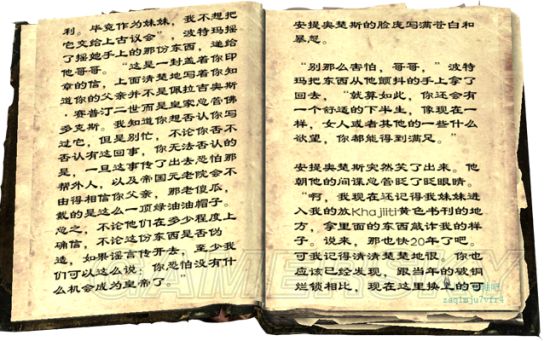 利。毕竟作为妹妹，我不想把
它交给上古议会”，波特玛摇
了摇她手上的那份东西，递给
他哥哥。“这是一封盖着你印
章的信，上面清楚地写着你知
道你的父亲并不是佩拉吉奥斯
·赛普汀二世而是皇家总管佛
多克斯。我知道你想否认你写
过它，但是别忙，不论你否不
否认有这回事，你无法否认的
是，一旦这事传了出去恐怕那
帮外人，以及帝国元老院会不
由得相信你父亲，那老傻瓜，
戴的是这么一顶绿油油帽子。
总之，不论他们在多少程度上
确信，不论这份东西是否伪
造，如果谣言传开去，至少我
们可以这么说：你恐怕没有什
么机会成为皇帝了。”
安提奥楚斯的脸庞写满苍白和
暴怒。
“别那么害怕，哥哥，”波特
玛把东西从他颤抖的手上拿了
回去，“就算如此，你还会有
一个舒适的下半生，像现在一
样，女人或者其他的一些什么
欲望，你都能得到满足。”
安提奥楚斯突然笑了出来。他
朝他的间谍总管眨了眨眼睛。
“啊，我现在还记得我妹妹进
入我的放Khajiiti黄色书刊的地
方，拿里面的东西敲诈我的样
子。说来，那也快20年了吧。
可我记得清清楚楚地恨，你也
应该已经发现，跟当年的破铜
烂锁相比，现在这里换上的可
GAMERSKY
zaqimju7vfr4